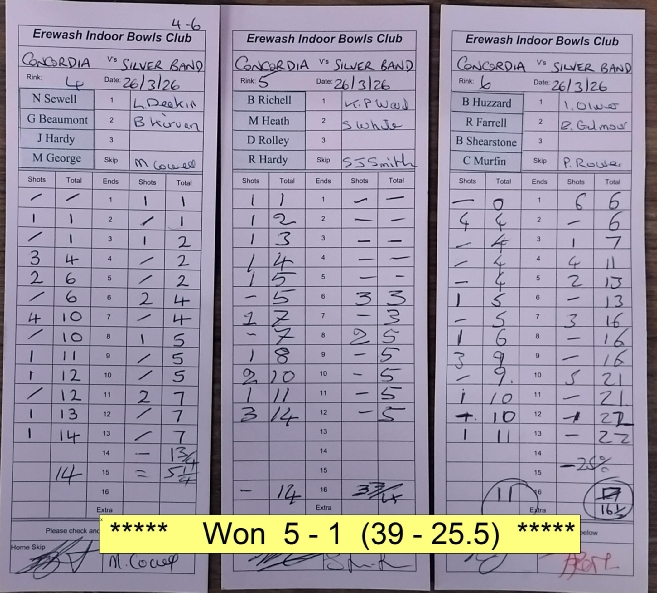 4-6
Erewash Indoor Bowls Club
CONCORDIA Vs SILVER BAND
Rink: 4 Date: 26/3/26
N Sewell 1 L. Deakin
G Beaumont 2 B Kirvan
J Hardy 3
M George Skip M Cowell
Shots Total Ends Shots Total
/ / 1 1 1
1 1 2 / 1
/ 1 3 1 2
3 4 4 / 2
2 6 5 / 2
/ 6 6 2 4
4 10 7 / 4
/ 10 8 1 5
1 11 9 / 5
1 12 10 / 5
/ 12 11 2 7
1 13 12 / 7
1 14 13 / 7
14 -
14 15 = 5 1/4
16
Extra
Please check and
Home Skip
M. Cowell
Erewash Indoor Bowls Club
CONCORDIA Vs SILVER BAND
Rink: 5 Date: 26/3/26
B Richell 1 K. P Wood
M Heath 2 S White
D Rolley 3
R Hardy Skip SJSmith
Shots Total Ends Shots Total
1 1 1 - -
1 2 2 - -
1 3 3 - -
1 4 4 - -
1 5 5 - -
- 5 6 3 3
1 7 7 - 3
- 7 8 2 5
1 8 9 - 5
2 10 10 - 5
1 11 11 - 5
3 14 12 - 5
13
14
15
- 14 16 3 3/4
Extra
Erewash Indoor Bowls Club
CONCORDIA Vs SILVER BAND
Rink: 6 Date: 26/3/26
B Huzzard 1 I. Oliver
R Farrell 2 B. Gilmour
B Shearstone 3
C Murfin Skip P. Rowe
Shots Total Ends Shots Total
- 0 1 6 6
4 4 2 - 6
- 4 3 1 7
- 4 4 4 11
- 4 5 2 13
1 5 6 - 13
- 5 7 3 16
1 6 8 - 16
3 9 9 - 16
- 9. 10 5 21
1 10 11 - 21
- 10 12 1 22
1 11 13 - 22
14
15 -25%
11 16
Extra 16 1/2
below
***** Won 5 - 1 (39 - 25.5) *****